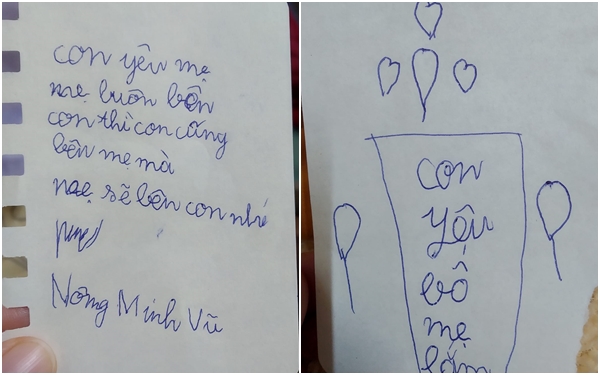 con yêu mẹ
mẹ buôn bên
con thì con cũng
bên mẹ mà
mẹ sẽ bên con nhé
Nông Minh Vũ
con
yêu
bố
mẹ
lắm